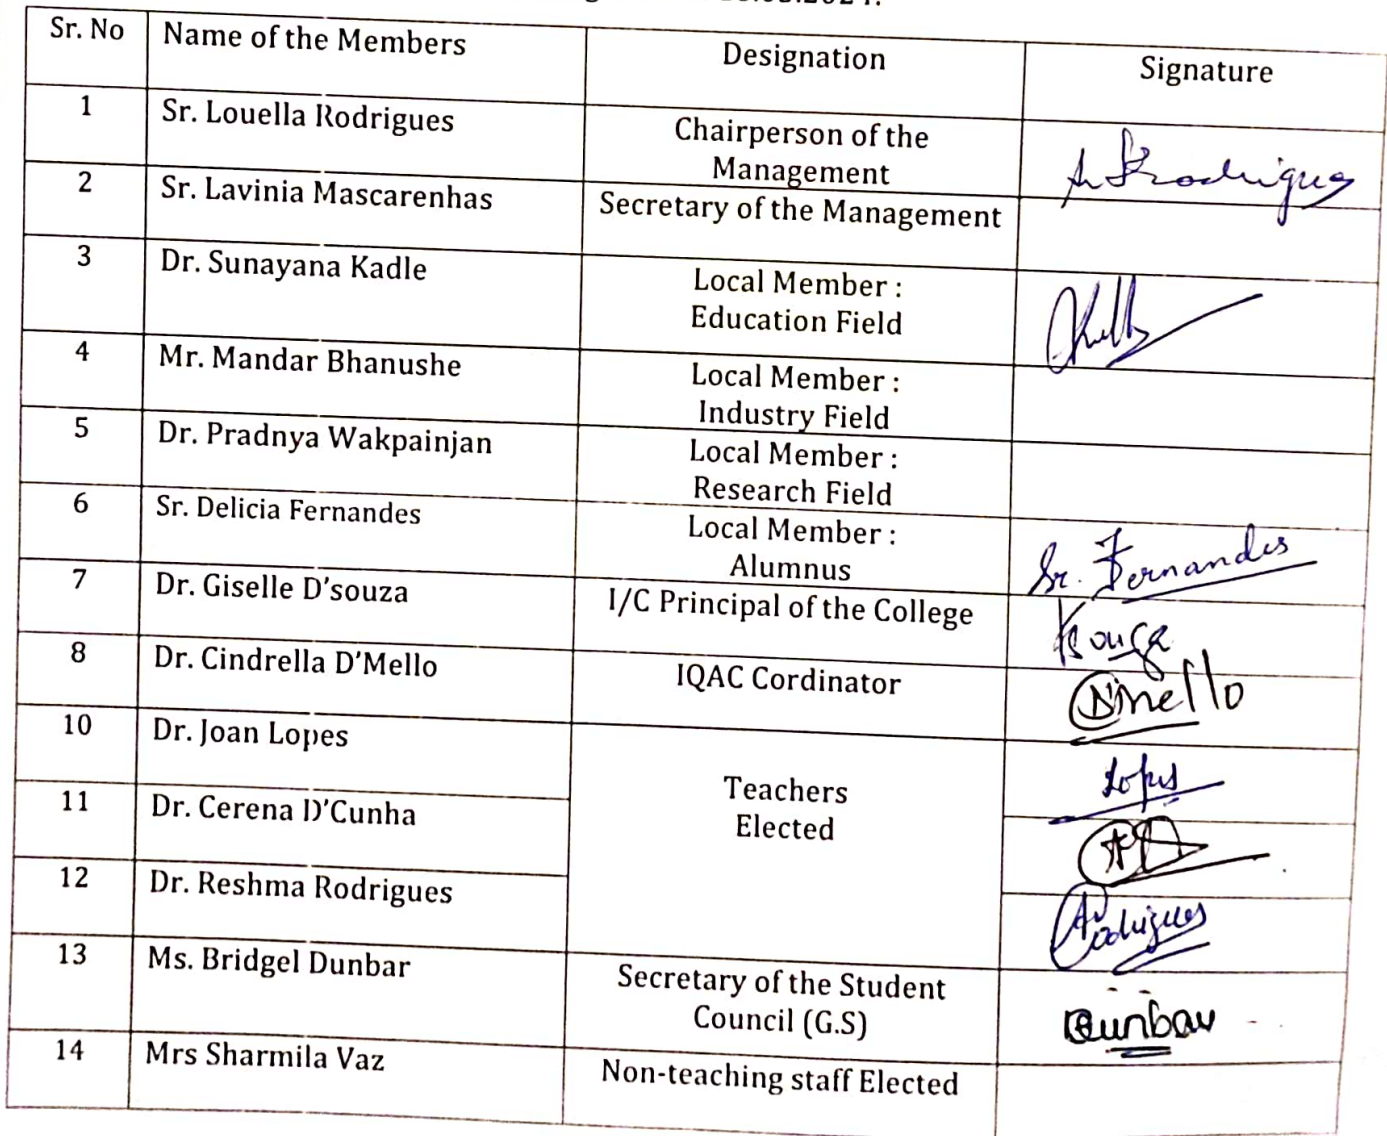 Sr. No Name of the Members Designation Signature
1 Sr. Louella Rodrigues Chairperson of the
Management
2 Sr. Lavinia Mascarenhas Secretary of the Management
3 Dr. Sunayana Kadle Local Member :
Education Field
4 Mr. Mandar Bhanushe Local Member :
Industry Field
5 Dr. Pradnya Wakpainjan Local Member :
Research Field
6 Sr. Delicia Fernandes Local Member :
Alumnus Sr. Fernandes
7 Dr. Giselle D'souza I/C Principal of the College
8 Dr. Cindrella D'Mello IQAC Cordinator
10 Dr. Joan Lopes Lopes
Teachers
Elected
11 Dr. Cerena D'Cunha
12 Dr. Reshma Rodrigues Rodrigues
13 Ms. Bridgel Dunbar Secretary of the Student
Council (G.S) Dunbar
14 Mrs Sharmila Vaz Non-teaching staff Elected